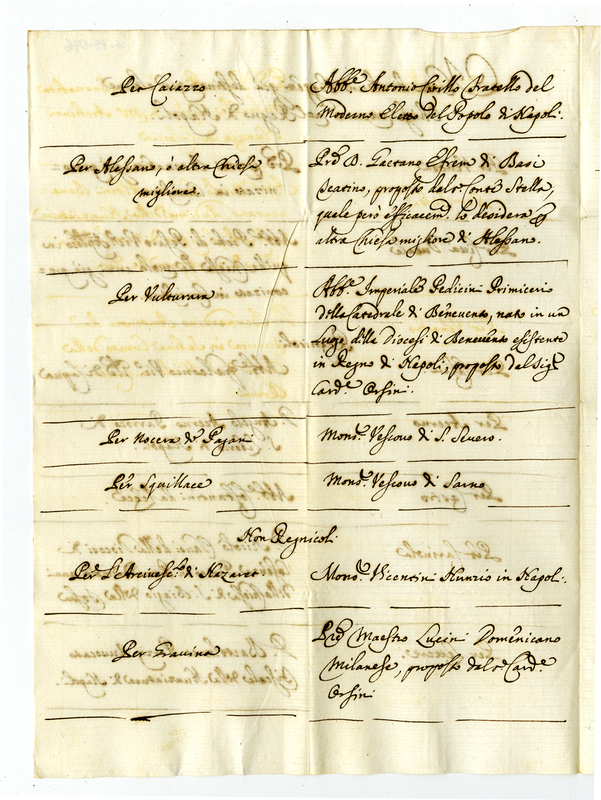 Per Caiazzo
Abb.e Antonio Cirillo Fratello del
Moderno Eletto del Popolo di Napoli.
Per Alessano, ò altra Chiesa
migliore.
Pré D. Gaetano Efrem di Bari
Teatino, proposto dal s.r Conte Stella,
quale però efficacem.e lo desidera
altra Chiesa migliore di Alessano.
Per Vulturara
Abb.e Imperiale Pedicini Primicerio
della Catedrale di Benevento, nato in un
Luogo della Diocesi di Benevento esistente
in Regno di Napoli, proposto dal Sig.r
Card.e Orsini.
Per Nocera de Pagani
Mons.r Vescovo di S. Severo.
Per Squillace
Mons.r Vescovo di Sarno
Non Regnicoli
Per L'Arcivesc.to di Nazaret.
Mons.r Vicentini Nunzio in Napoli.
Per Gravina
Pré Maestro Lucini Domenicano
Milanese, proposto dal s.r Card.e
Orsini